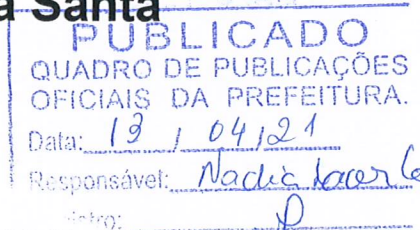 a Santa
PUBLICADO
QUADRO DE PUBLICAÇÕES
OFICIAIS DA PREFEITURA.
Data: 13 / 04/21
Responsável: Nadia